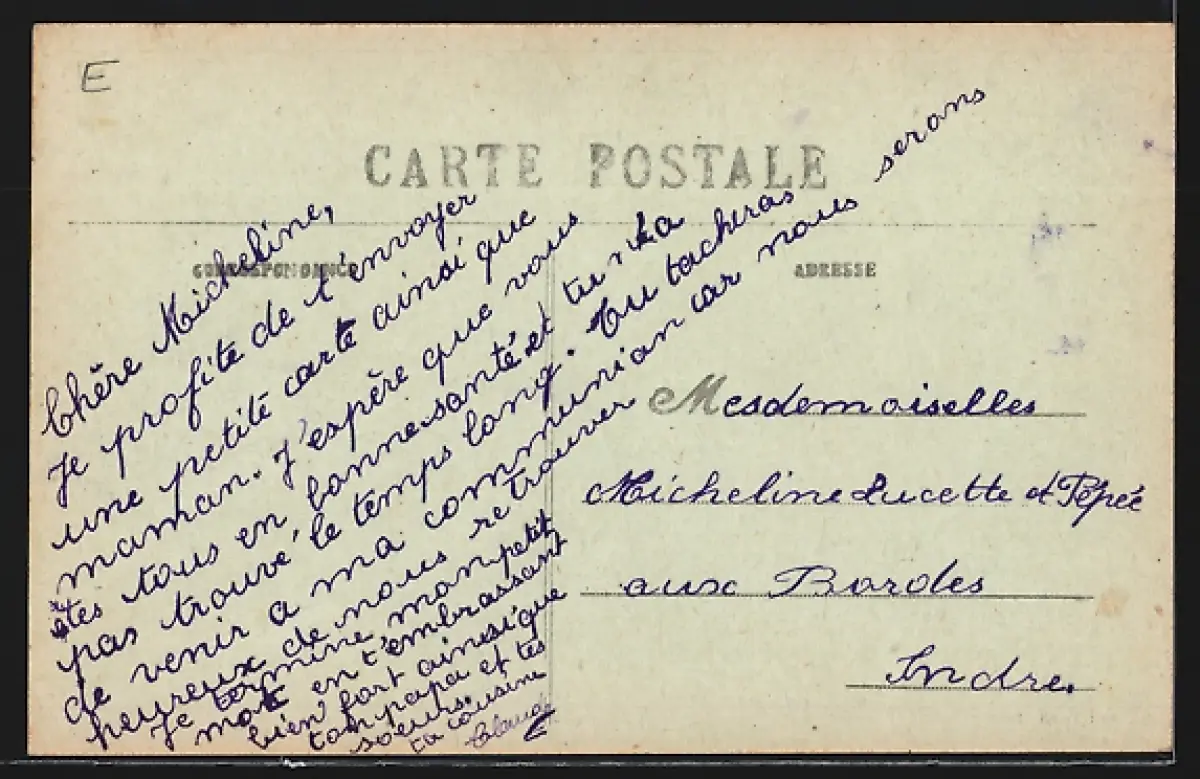 E
CARTE POSTALE
CORRESPONDANCE
ADRESSE
Chère Micheline,
Je profite de t'envoyer
une petite carte ainsi que
maman. J'espère que vous
êtes tous en bonne santé et tu n'a
pas trouvé le temps long. Tu tacheras
de venir a ma communion car nous serons
heureux de nous retrouver
Je termine mon petit
mot en t'embrassant
bien fort ainsi que
ton papa et tes
soeurs.
ta cousine
Claude
Mesdemoiselles
Micheline Lucette et Pépée
aux Bordes
Indre.